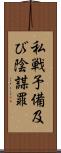 私戦予備及び陰謀罪